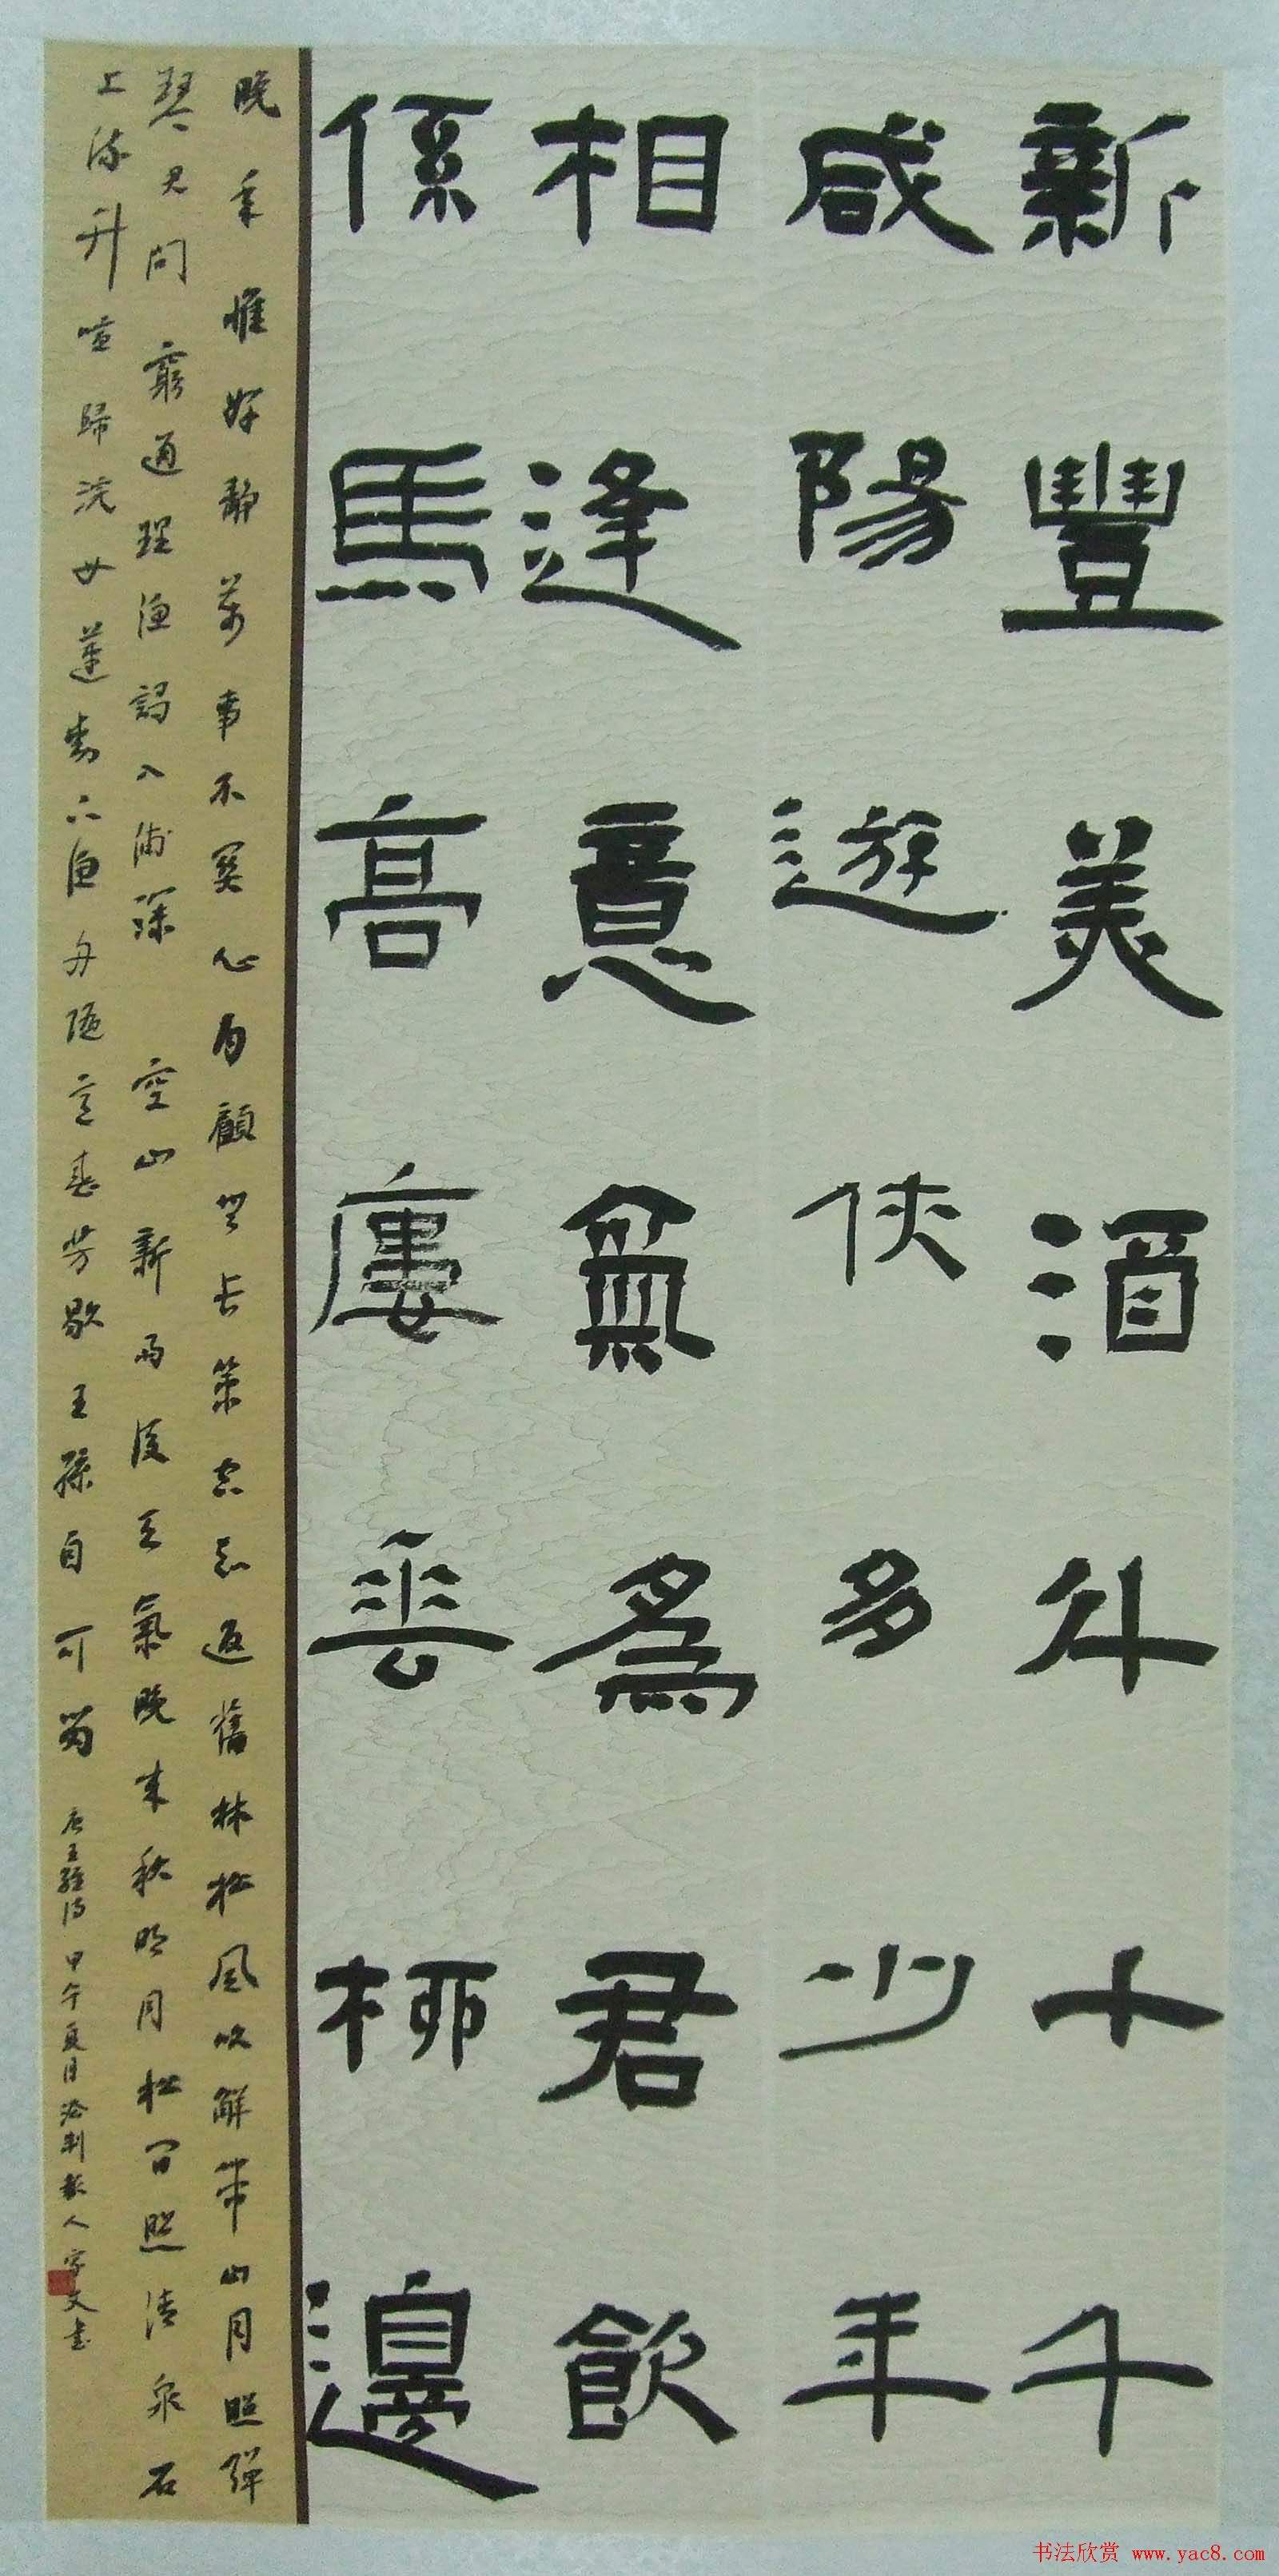 新豐美酒斗十千
咸陽遊俠多少年
相逢意氣為君飲
係馬高廔垂柳邊
晚年惟好靜萬事不關心自顧無長策空知返舊林松風吹解帶山月照彈
琴君問窮通理漁謌入浦深 空山新雨後天氣晚來秋明月松間照清泉石
上流竹喧歸浣女蓮動下漁舟隨意春芳歇王孫自可留 唐王維詩 甲午夏月 人 文書
书法欣赏 www.yac8.com